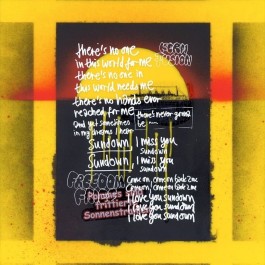 there's no one
in this world for me
there's no one in
this world needs me
there's no hands ever
reached for me
and yet sometimes
in my dreams I hear
there's never gonna
be
Sundown I miss you
Sundown
Sundown I miss you
Sundown
FREEDOM
Come on, come on
Come on, come on
I love you sundown
I love you sundown
I love you sundown
Pommes
frittier
Sonnenstr